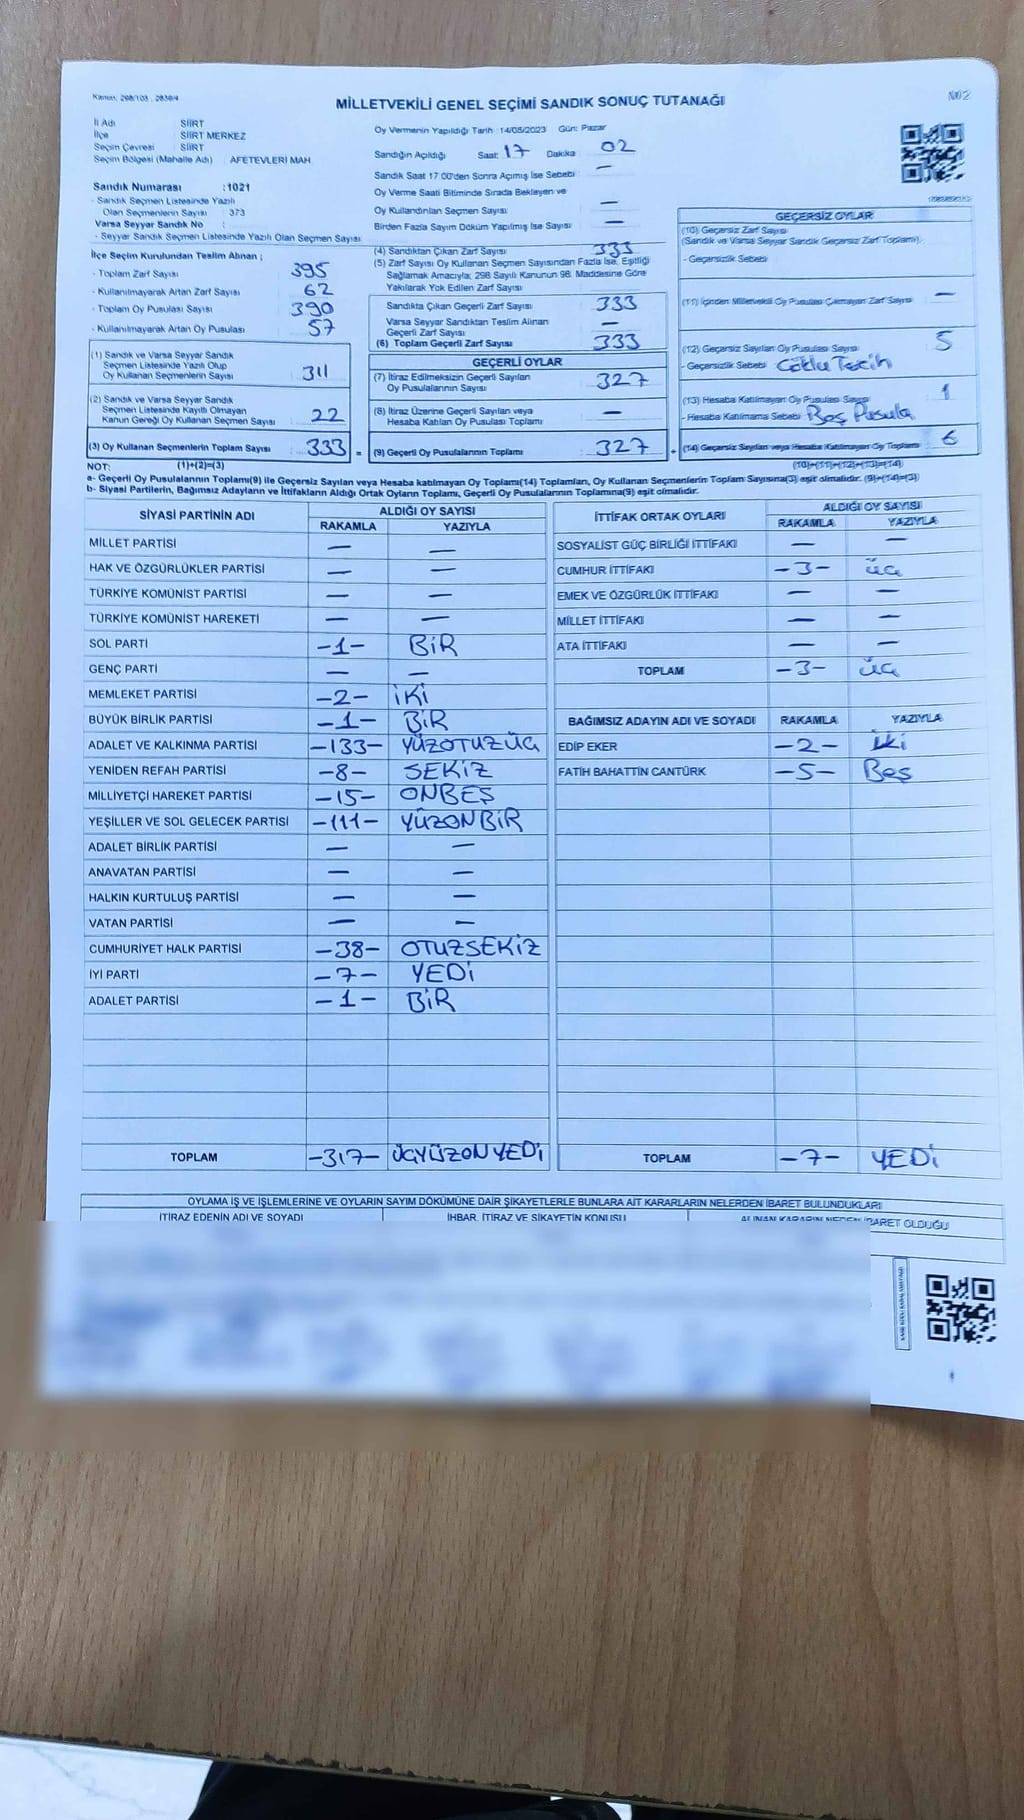 Kanun: 298/103 , 2839/4
MİLLETVEKİLİ GENEL SEÇİMİ SANDIK SONUÇ TUTANAĞI
İl Adı SİİRT
İlçe SİİRT MERKEZ
Seçim Çevresi SİİRT
Seçim Bölgesi (Mahalle Adı) : AFETEVLERİ MAH
Sandık Numarası :1021
- Sandık Seçmen Listesinde Yazılı
Olan Seçmenlerin Sayısı : 373
Varsa Seyyar Sandık No :
- Seyyar Sandık Seçmen Listesinde Yazılı Olan Seçmen Sayısı
İlçe Seçim Kurulundan Teslim Alınan ;
- Toplam Zarf Sayısı 395
- Kullanılmayarak Artan Zarf Sayısı 62
- Toplam Oy Pusulası Sayısı 390
- Kullanılmayarak Artan Oy Pusulası 57
(1) Sandık ve Varsa Seyyar Sandık
Seçmen Listesinde Yazılı Olup
Oy Kullanan Seçmenlerin Sayısı 311
(2) Sandık ve Varsa Seyyar Sandık
Seçmen Listesinde Kayıtlı Olmayan
Kanun Gereği Oy Kullanan Seçmen Sayısı 22
(3) Oy Kullanan Seçmenlerin Toplam Sayısı 333 =
Oy Vermenin Yapıldığı Tarih: 14/05/2023 Gün: Pazar
Sandığın Açıldığı Saat: 17 Dakika 02
Sandık Saat 17:00'den Sonra Açımış İse Sebebi —
Oy Verme Saati Bitiminde Sırada Bekleyen ve
Oy Kullandırılan Seçmen Sayısı —
Birden Fazla Sayım Döküm Yapılmış İse Sayısı —
(4) Sandıktan Çıkan Zarf Sayısı 333
(5) Zarf Sayısı Oy Kullanan Seçmen Sayısından Fazla İse, Eşitliği
Sağlamak Amacıyla; 298 Sayılı Kanunun 98. Maddesine Göre
Yakılarak Yok Edilen Zarf Sayısı
Sandıkta Çıkan Geçerli Zarf Sayısı 333
Varsa Seyyar Sandıktan Teslim Alınan
Geçerli Zarf Sayısı —
(6) Toplam Geçerli Zarf Sayısı 333
GEÇERLİ OYLAR
(7) İtiraz Edilmeksizin Geçerli Sayılan
Oy Pusulalarının Sayısı 327
(8) İtiraz Üzerine Geçerli Sayılan veya
Hesaba Katılan Oy Pusulası Toplamı —
(9) Geçerli Oy Pusulalarının Toplamı 327 +
GEÇERSİZ OYLAR
(10) Geçersiz Zarf Sayısı
(Sandık ve Varsa Seyyar Sandık Geçersiz Zarf Toplamı).
- Geçersizlik Sebebi
(11) İçinden Milletvekili Oy Pusulası Çıkmayan Zarf Sayısı —
(12) Geçersiz Sayılan Oy Pusulası Sayısı 5
- Geçersizlik Sebebi Çoklu Tercih
(13) Hesaba Katılmayan Oy Pusulası Sayısı 1
- Hesaba Katılmama Sebebi Boş Pusula
(14) Geçersiz Sayılan veya Hesaba Katılmayan Oy Toplamı 6
NOT: (1)+(2)=(3) (10)+(11)+(12)+(13)=(14)
a- Geçerli Oy Pusulalarının Toplamı(9) ile Geçersiz Sayılan veya Hesaba katılmayan Oy Toplamı(14) Toplamları, Oy Kullanan Seçmenlerin Toplam Sayısına(3) eşit olmalıdır. (9)+(14)=(3)
b- Siyasi Partilerin, Bağımsız Adayların ve İttifakların Aldığı Ortak Oyların Toplamı, Geçerli Oy Pusulalarının Toplamına(9) eşit olmalıdır.
SİYASİ PARTİNİN ADI ALDIĞI OY SAYISI
RAKAMLA YAZIYLA
MİLLET PARTİSİ — —
HAK VE ÖZGÜRLÜKLER PARTİSİ — —
TÜRKİYE KOMÜNİST PARTİSİ — —
TÜRKİYE KOMÜNİST HAREKETİ — —
SOL PARTİ -1- BİR
GENÇ PARTİ — —
MEMLEKET PARTİSİ -2- İKİ
BÜYÜK BİRLİK PARTİSİ -1- BİR
ADALET VE KALKINMA PARTİSİ -133- YÜZOTUZÜÇ
YENİDEN REFAH PARTİSİ -8- SEKİZ
MİLLİYETÇİ HAREKET PARTİSİ -15- ONBEŞ
YEŞİLLER VE SOL GELECEK PARTİSİ -111- YÜZONBİR
ADALET BİRLİK PARTİSİ — —
ANAVATAN PARTİSİ — —
HALKIN KURTULUŞ PARTİSİ — —
VATAN PARTİSİ — —
CUMHURİYET HALK PARTİSİ -38- OTUZSEKİZ
İYİ PARTİ -7- YEDİ
ADALET PARTİSİ -1- BİR
TOPLAM -317- ÜÇYÜZONYEDİ
İTTİFAK ORTAK OYLARI ALDIĞI OY SAYISI
RAKAMLA YAZIYLA
SOSYALİST GÜÇ BİRLİĞİ İTTİFAKI — —
CUMHUR İTTİFAKI -3- üç
EMEK VE ÖZGÜRLÜK İTTİFAKI — —
MİLLET İTTİFAKI — —
ATA İTTİFAKI — —
TOPLAM -3- üç
BAĞIMSIZ ADAYIN ADI VE SOYADI RAKAMLA YAZIYLA
EDİP EKER -2- İki
FATİH BAHATTİN CANTÜRK -5- Beş
TOPLAM -7- YEDİ
OYLAMA İŞ VE İŞLEMLERİNE VE OYLARIN SAYIM DÖKÜMÜNE DAİR ŞİKAYETLERLE BUNLARA AİT KARARLARIN NELERDEN İBARET BULUNDUKLARI
İTİRAZ EDENİN ADI VE SOYADI İHBAR, İTİRAZ VE ŞİKAYETİN KONUSU ALINAN KARARIN NEDEN İBARET OLDUĞU